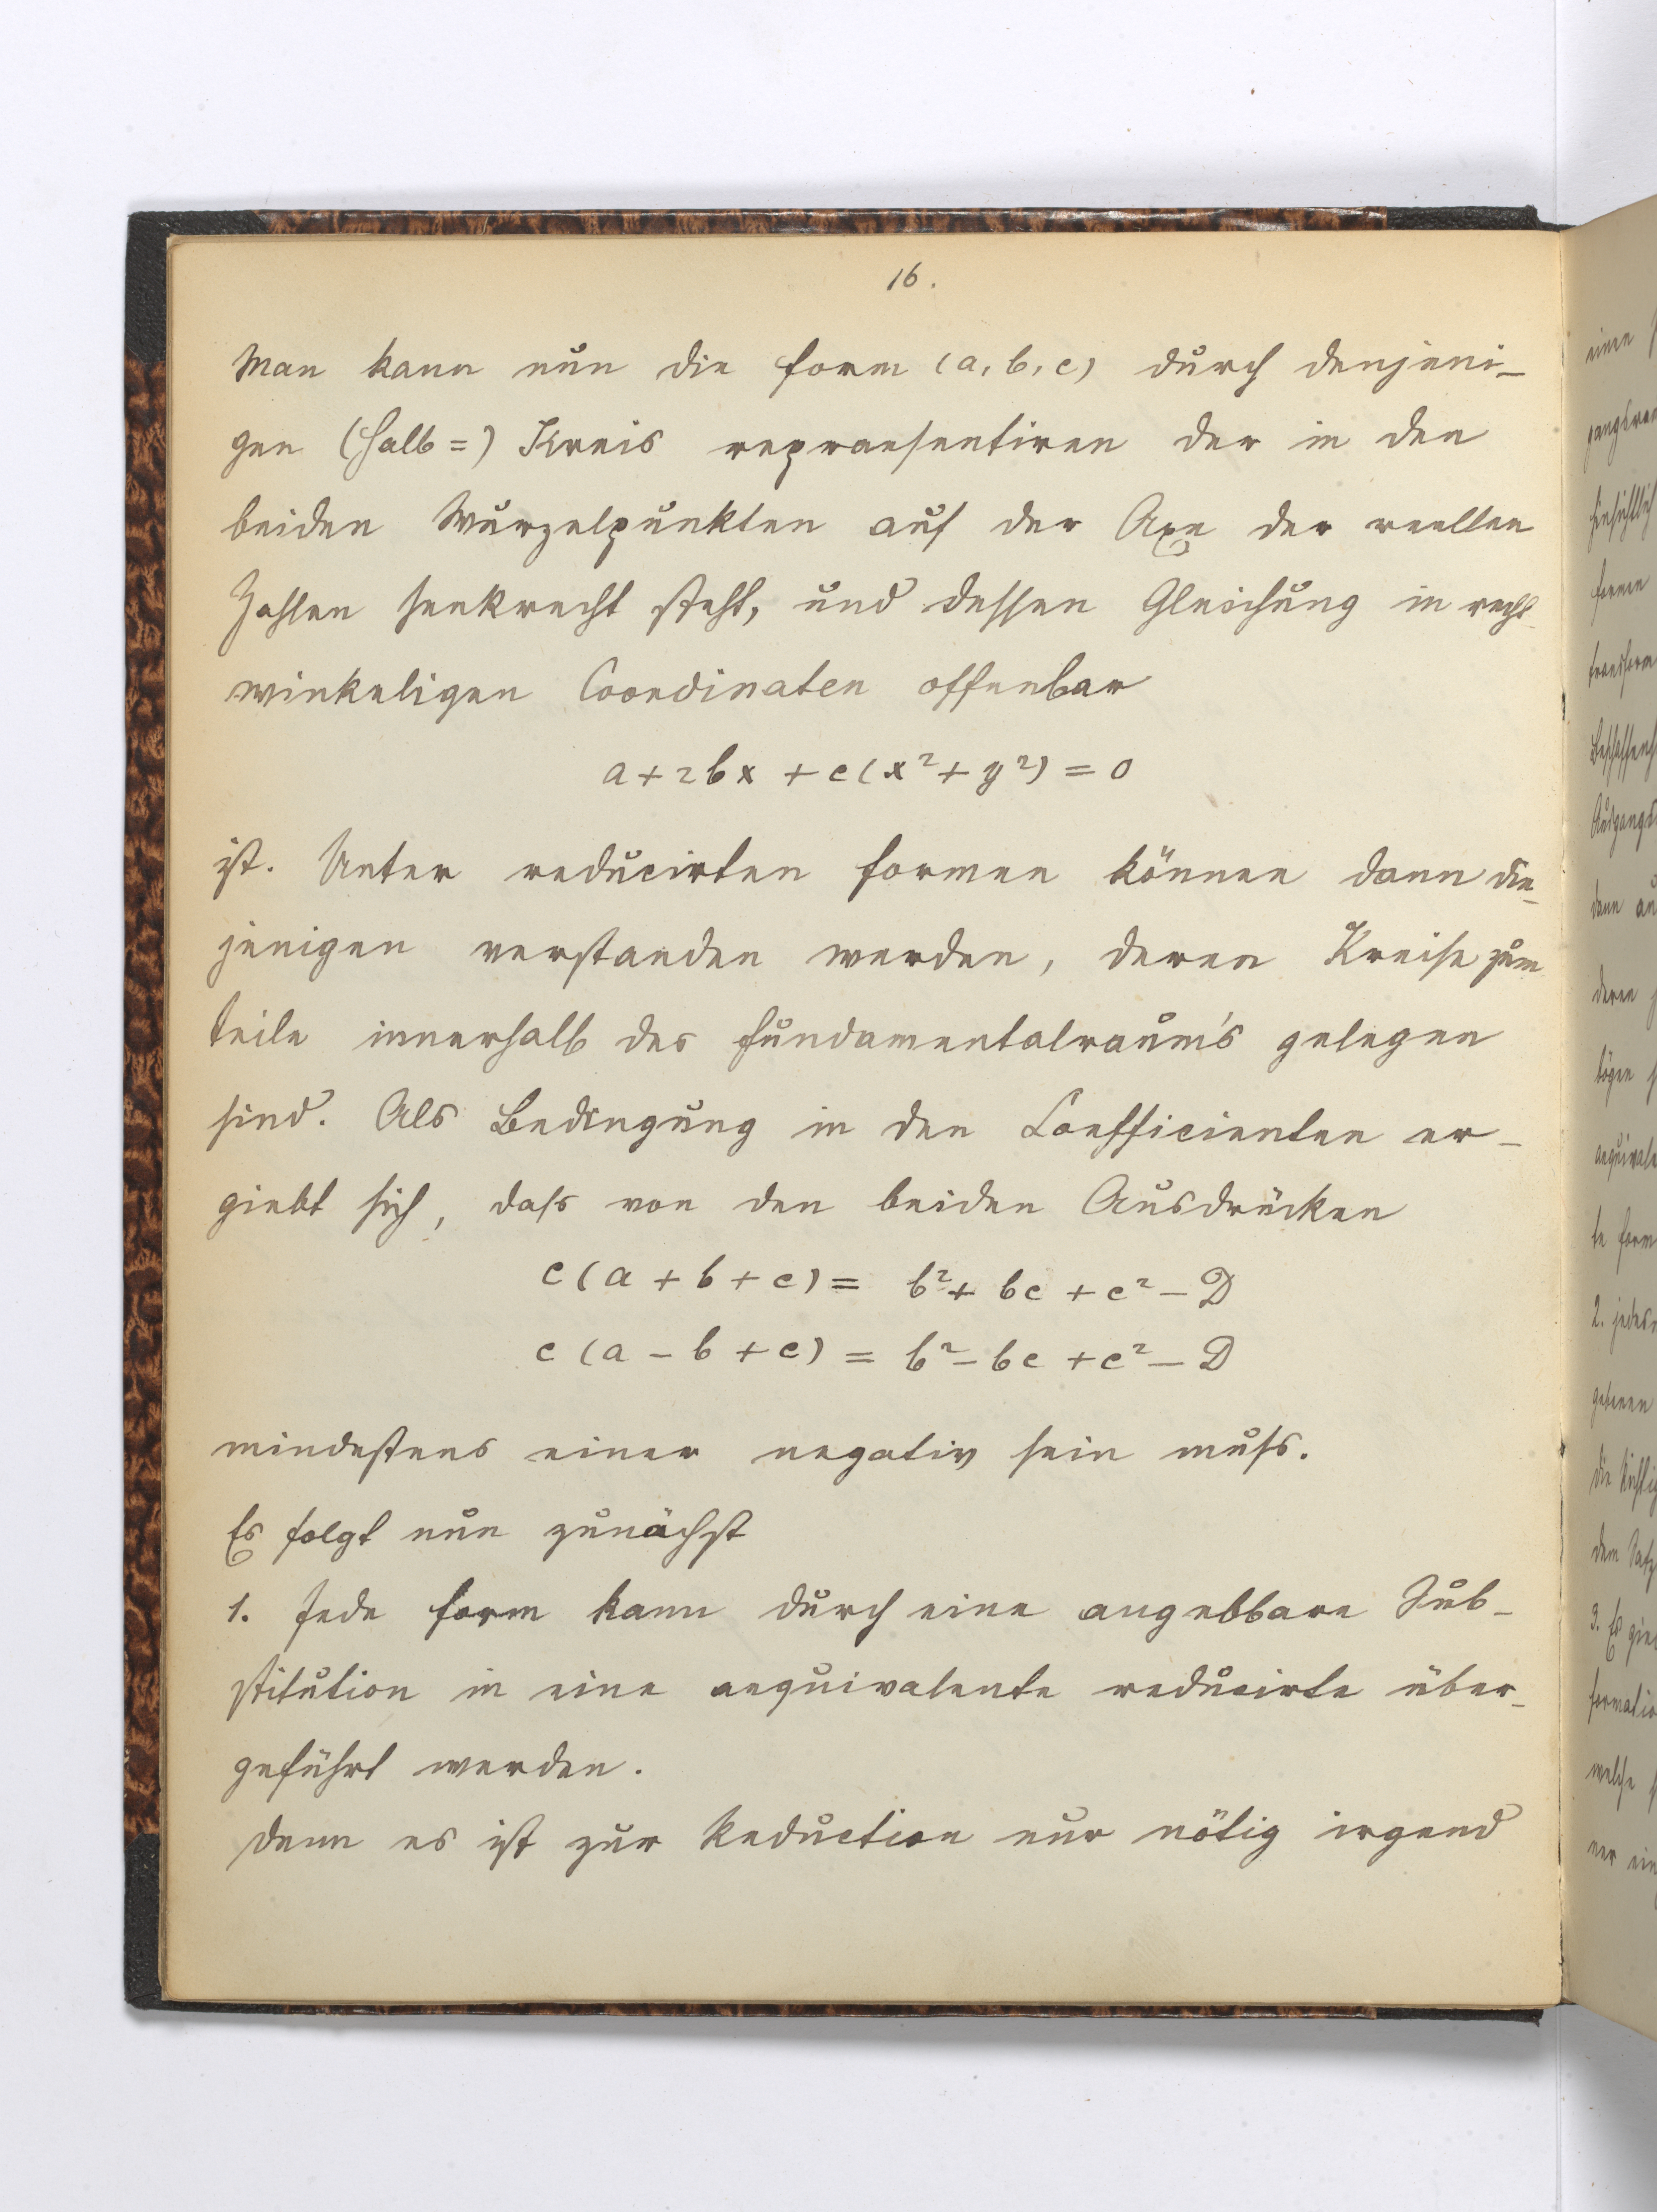 16.
Man kann nun die Form (a, b, c) durch denjeni-
gen (Halb=) Kreis repraesentiren der in den
beiden Wurzelpunkten auf der Axe der reellen
Zahlen senkrecht steht, und dessen Gleichung in recht-
winkeligen Coordinaten offenbar
a + 2bx + c(x² + y²) = 0
ist. Unter reducirten Formen können dann die-
jenigen verstanden werden, deren Kreise zum
teile innerhalb des Fundamentalraum's gelegen
sind. Als Bedingung in den Coefficienten er-
giebt sich, dass von den beiden Ausdrücken
c(a + b + c) = b² + bc + c² - D
c(a - b + c) = b² - bc + c² - D
mindestens einer negativ sein muss.
Es folgt nun zunächst
1. Jede Form kann durch eine angebbare Sub-
stitution in eine aequivalente reducirte über-
geführt werden.
Denn es ist zur Reduction nur nötig irgend